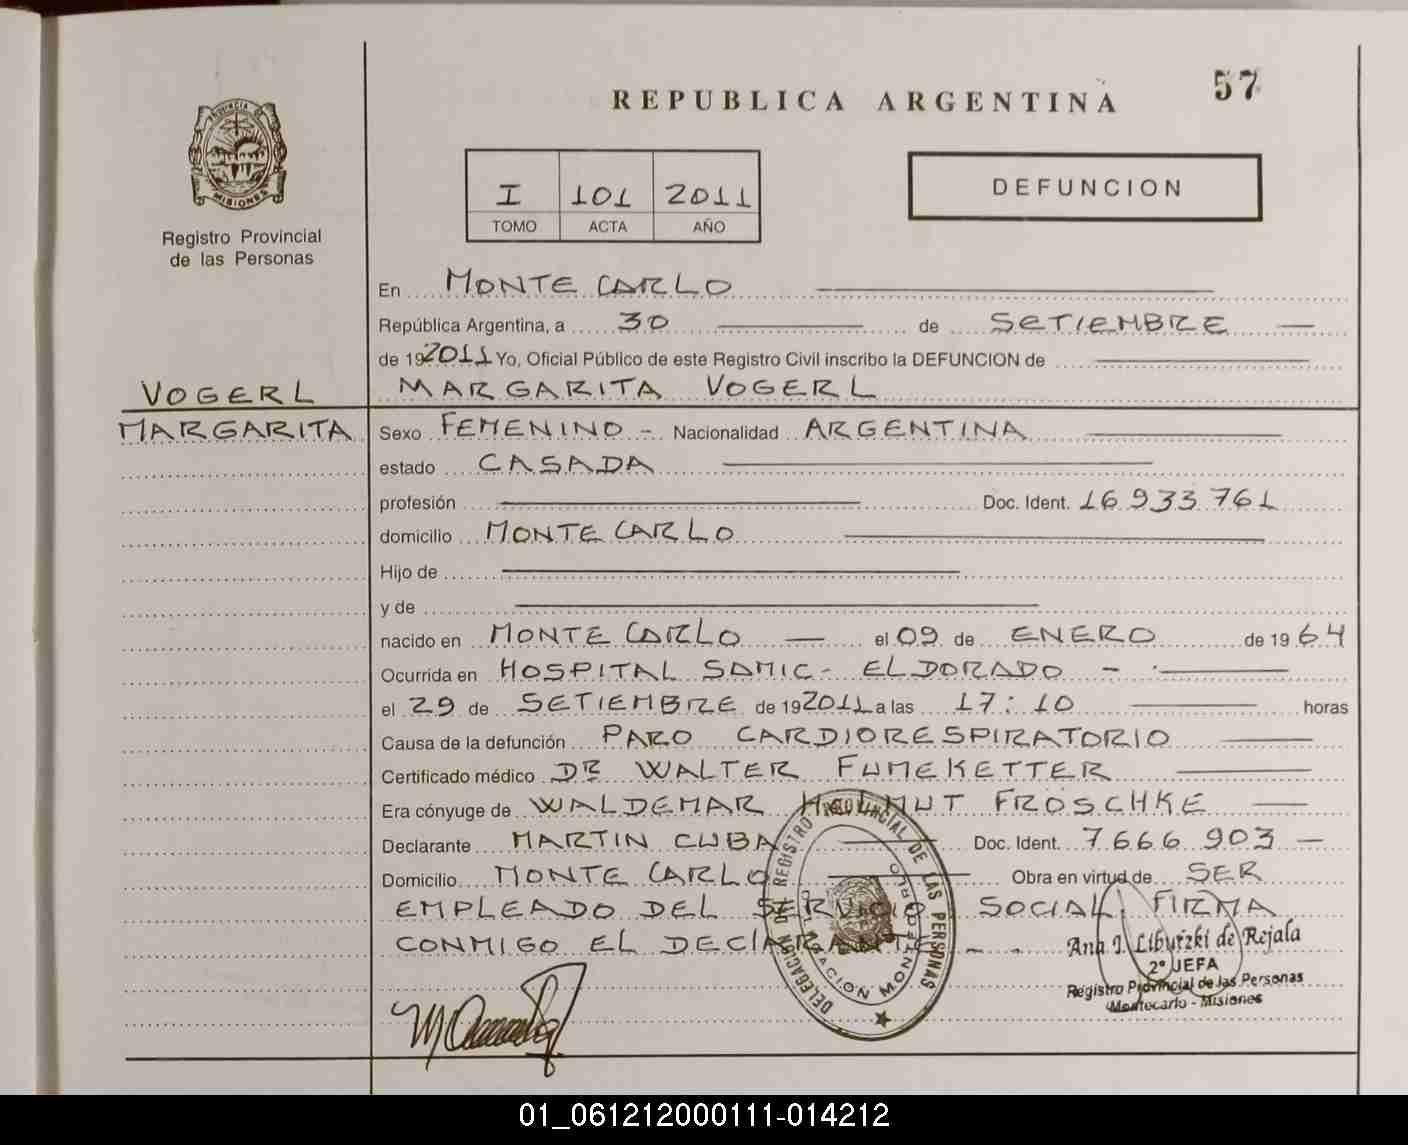 57
REPUBLICA ARGENTINA
PROVINCIA DE
MISIONES
Registro Provincial
de las Personas
I 101 2011
TOMO ACTA AÑO
DEFUNCION
En MONTE CARLO
República Argentina, a 30 de SETIEMBRE
de 192011 Yo, Oficial Público de este Registro Civil inscribo la DEFUNCION de
VOGERL
MARGARITA
MARGARITA VOGERL
Sexo FEMENINO - Nacionalidad ARGENTINA
estado CASADA
profesión Doc. Ident. 16.933.761
domicilio MONTE CARLO
Hijo de
y de
nacido en MONTE CARLO el 09 de ENERO de 1964
Ocurrida en HOSPITAL SAMIC - ELDORADO -
el 29 de SETIEMBRE de 192011 a las 17:10 horas
Causa de la defunción PARO CARDIORESPIRATORIO
Certificado médico DR WALTER FUMEKETTER
Era cónyuge de WALDEMAR HELMUT FROSCHKE
Declarante MARTIN CUBA Doc. Ident. 7.666.903 -
Domicilio MONTE CARLO Obra en virtud de SER
EMPLEADO DEL SERVICIO SOCIAL. FIRMA
CONMIGO EL DECLARANTE - -
DELEGACION DEL REGISTRO PROVINCIAL DE LAS PERSONAS
Ana I. Liburzki de Rejala
2º JEFA
Registro Provincial de las Personas
Montecarlo - Misiones
01_061212000111-014212